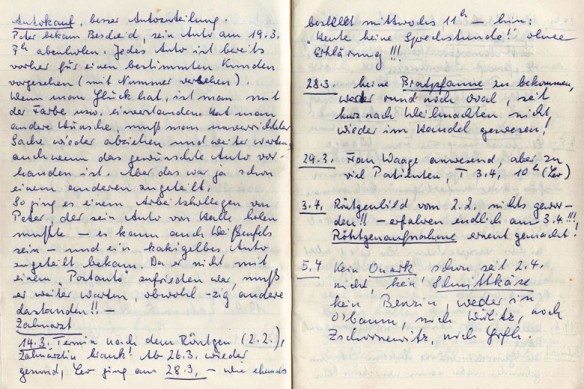 Autokauf, besser Autozuteilung.
Peter bekam Bescheid, sein Auto am 19.3.
7h abzuholen. Jedes Auto ist bereits
vorher für einen bestimmten Kunden
vorgesehen (mit Nummer versehen).
Wenn man Glück hat, ist man mit
der Farbe usw. einverstanden. Hat man
andere Wünsche, muß man unverrichteter
Sache wieder abziehen und weiter warten,
auch wenn das gewünschte Auto vor-
handen ist. Aber das war ja schon
einem anderen zugeteilt.
So ging es einem Arbeitskollegen von
Peter, der sein Auto von Halle holen
mußte – es kann auch Weißenfels
sein – und ein kakigelbes Auto
zugeteilt bekam. Da er nicht mit
einem "Postauto" zufrieden war, muß
er weiter warten, obwohl -zig andere
dastanden!! –
Zahnarzt
14.3. Termin nach dem Röntgen (2.2.),
Zahnärztin krank! Ab 26.3. wieder
gesund, Leo ging am 28.3. – wie ehemals
bestellt mittwochs 11h – hin:
"Heute keine Sprechstunde!" ohne
Erklärung!!!
28.3. keine Bratpfanne zu bekommen,
weder rund noch oval, seit
kurz nach Weihnachten nicht
wieder im Handel gewesen!
29.3. Frau Waage anwesend, aber zu
viel Patienten, T 3.4. 10h (Leo)
3.4. Röntgenbild vom 2.2. nichts gewor-
den!! – erfahren endlich am 3.4.!!!,
Röntgenaufnahme erneut gemacht!
5.4 Kein Quark, schon seit 2.4.
nicht, kein Schnittkäse
kein Benzin, weder in
O'baum, noch Wörlitz, noch
Zschornewitz, noch